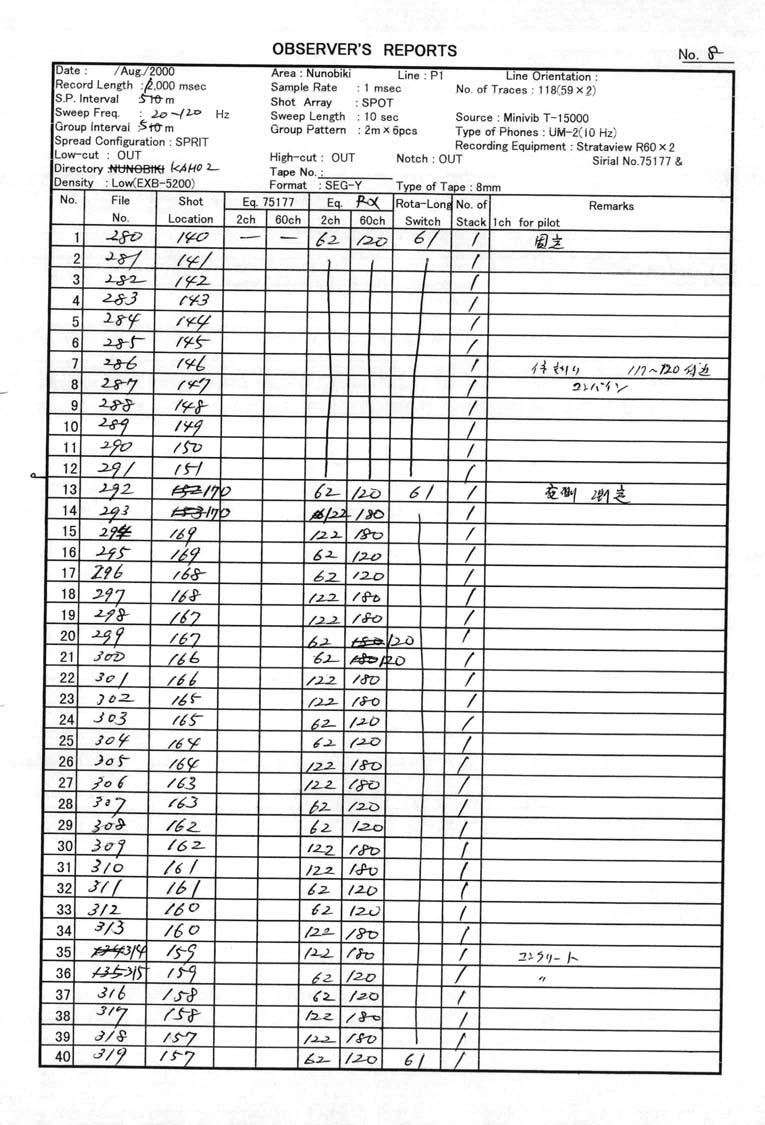 OBSERVER'S REPORTS
No. 8
Date : /Aug./2000 Area : Nunobiki Line : P1 Line Orientation :
Record Length : 12,000 msec Sample Rate : 1 msec No. of Traces : 118(59×2)
S.P. Interval 5 m Shot Array : SPOT
Sweep Freq. : 20-120 Hz Sweep Length : 10 sec Source : Minivib T-15000
Group Interval : 5 m Group Pattern : 2m×6pcs Type of Phones : UM-2(10 Hz)
Spread Configuration : SPRIT Recording Equipment : Strataview R60×2
Low-cut : OUT High-cut : OUT Notch : OUT Sirial No.75177 &
Directory :NUNOBIKI KAH02 Tape No. :
Density : Low(EXB-5200) Format : SEG-Y Type of Tape : 8mm
No. File Shot Eq. 75177 Eq. RX Rota-Long No. of Remarks
No. Location 2ch 60ch 2ch 60ch Switch Stack 1ch for pilot
1 280 140 — — 62 120 61 1 固定
2 281 141 1
3 282 142 1
4 283 143 1
5 284 144 1
6 285 145 1
7 286 146 1 117~120付近
8 287 147 1 コンバイン
9 288 148 1
10 289 149 1
11 290 150 1
12 291 151 1
13 292 152 170 62 120 61 1 測定
14 293 153 170 122 180 1
15 294 169 122 180 1
16 295 169 62 120 1
17 296 168 62 120 1
18 297 168 122 180 1
19 298 167 122 180 1
20 299 167 62 180 120 1
21 300 166 62 180 120 1
22 301 166 122 180 1
23 302 165 122 180 1
24 303 165 62 120 1
25 304 164 62 120 1
26 305 164 122 180 1
27 306 163 122 180 1
28 307 163 62 120 1
29 308 162 62 120 1
30 309 162 122 180 1
31 310 161 122 180 1
32 311 161 62 120 1
33 312 160 62 120 1
34 313 160 122 180 1
35 314 159 122 180 1 コンクリート
36 315 159 62 120 1 〃
37 316 158 62 120 1
38 317 158 122 180 1
39 318 157 122 180 1
40 319 157 62 120 61 1